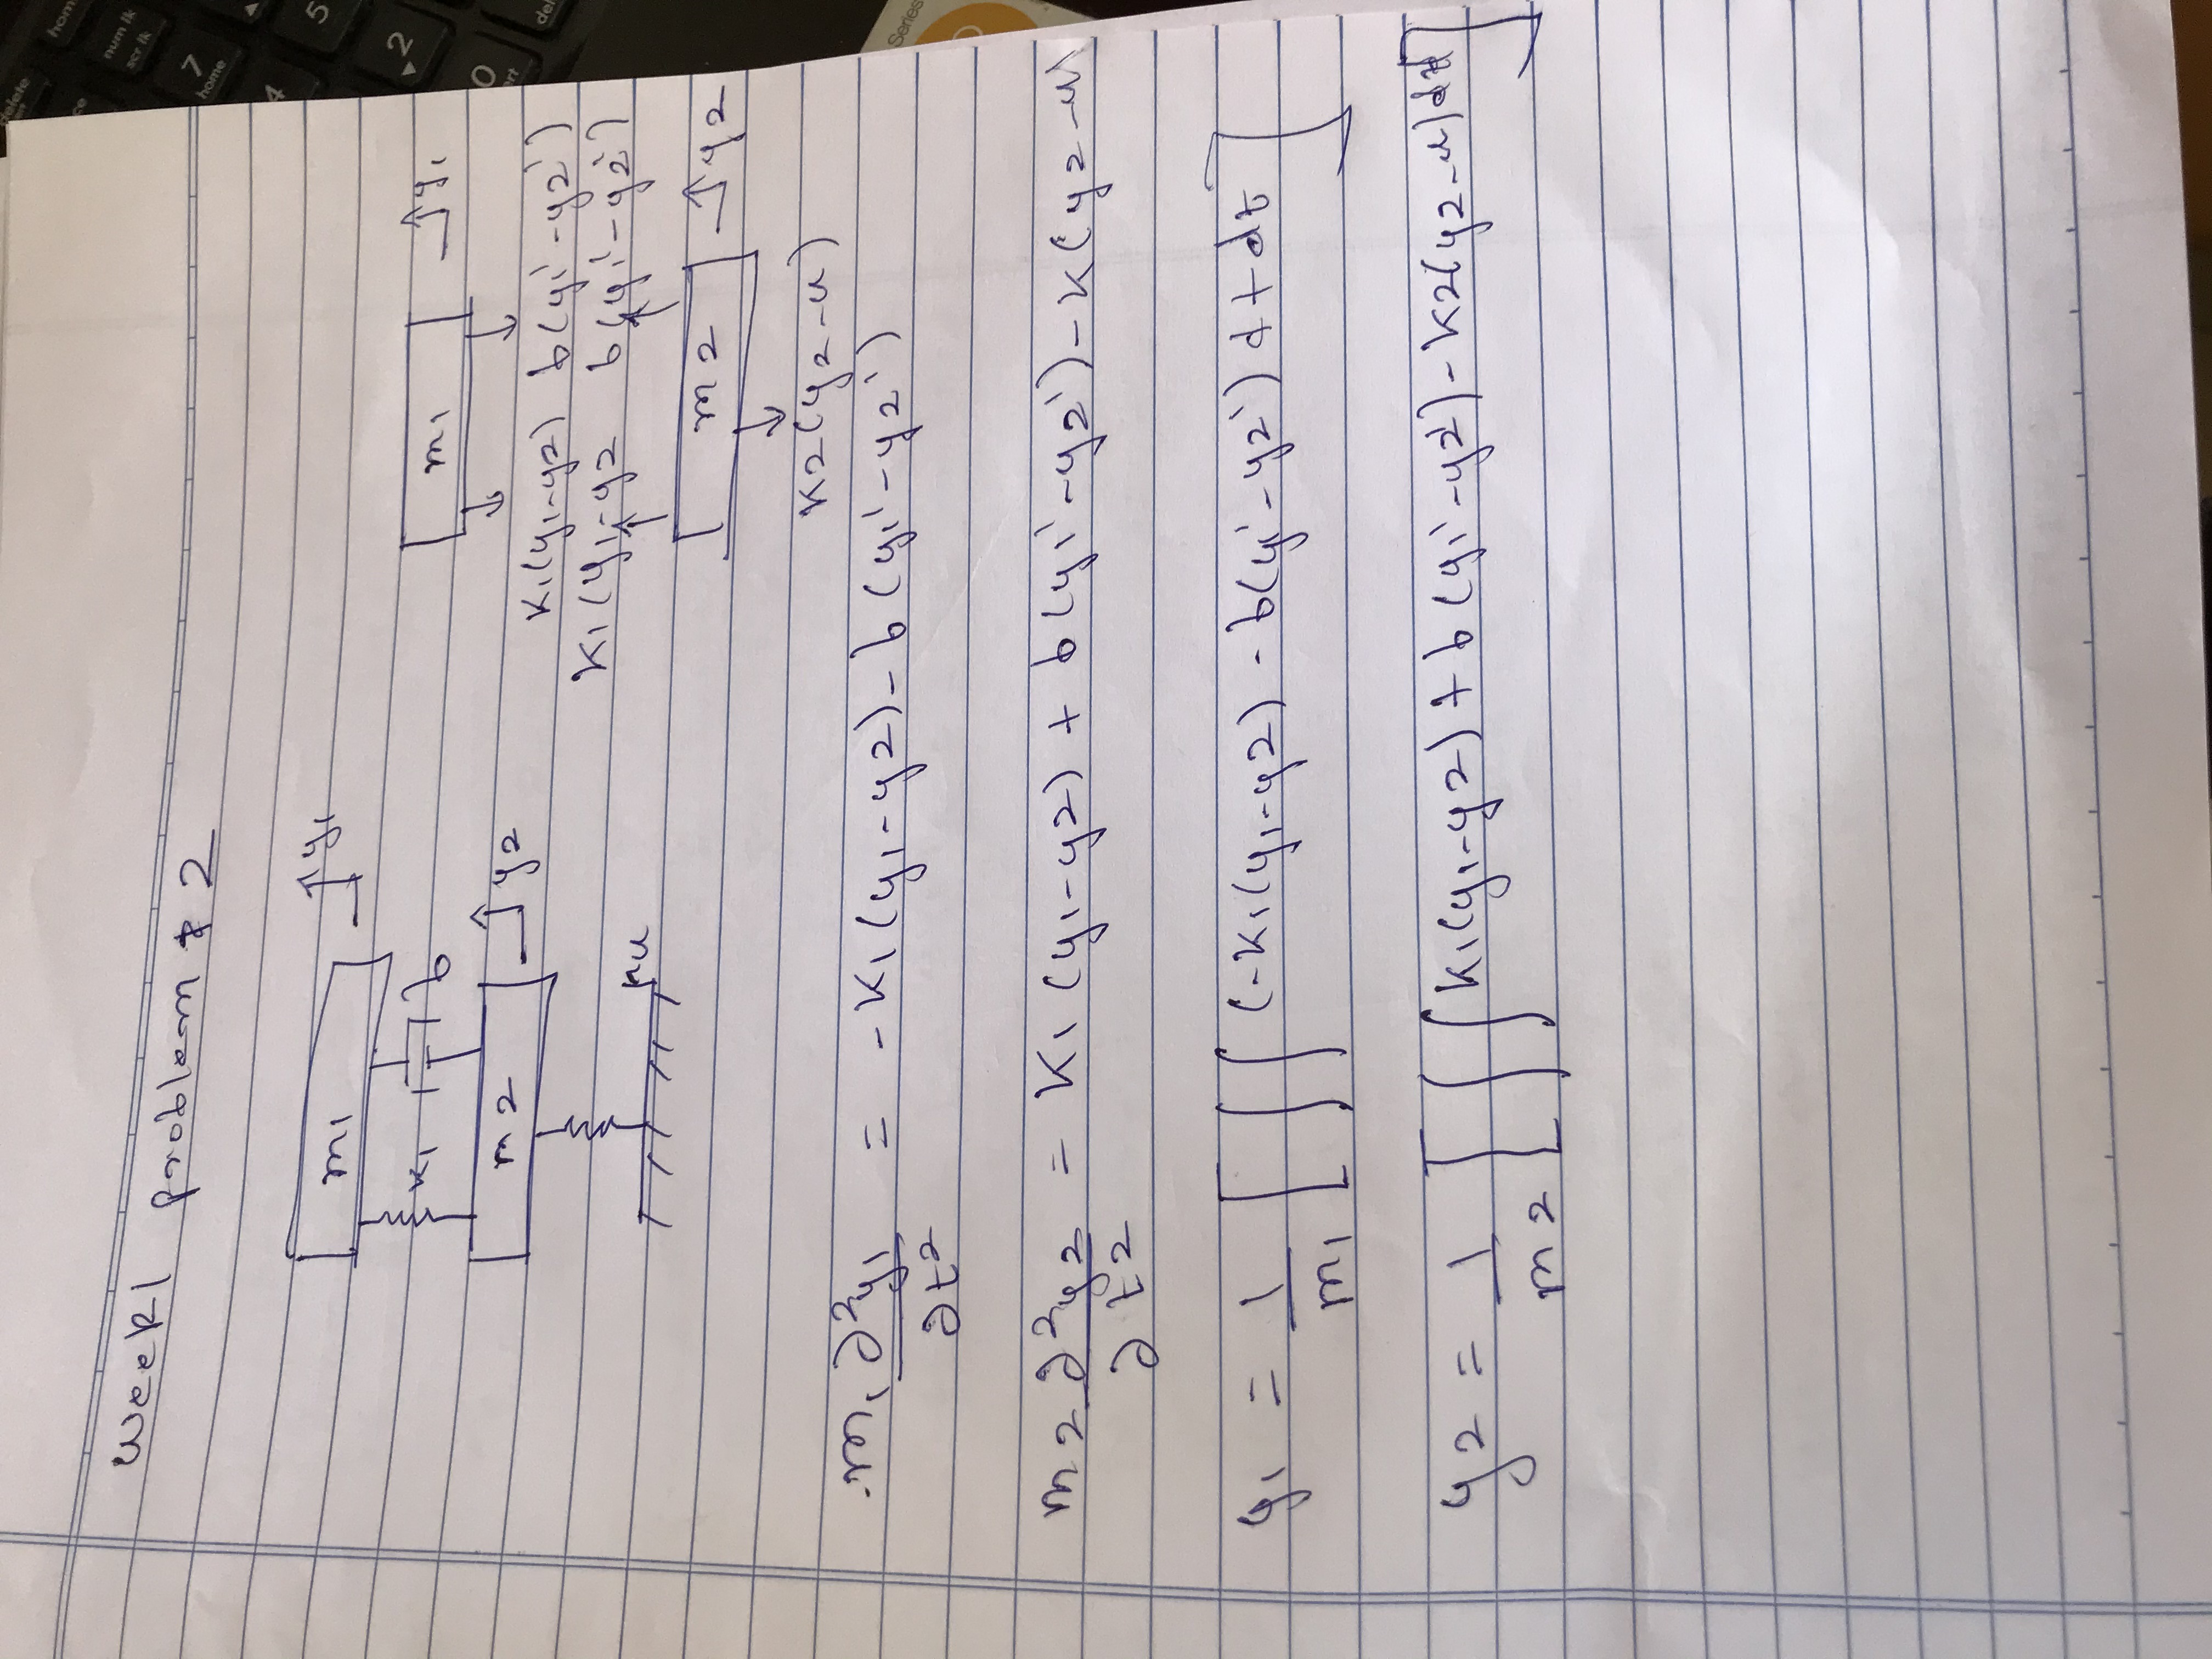 week1 problem # 2
m1
y1
k1
b
m2
y2
u
m1
y1
k1(y1-y2) b(y1'-y2')
k1(y1-y2 b(y1'-y2')
m2
y2
k2(y2-u)
m1 ∂²y1/∂t² = -k1(y1-y2)-b(y1'-y2')
m2 ∂²y2/∂t² = k1(y1-y2) + b(y1'-y2')-k(y2-u)
y1 = 1/m1 [∫∫(-k1(y1-y2) - b(y1'-y2') dt dt]
y2 = 1/m2 [∫∫k1(y1-y2) + b(y1'-y2')-k2(y2-u)dt]
delete
home
num lk
scr lk
7
home
4
5
2
0
del
Series